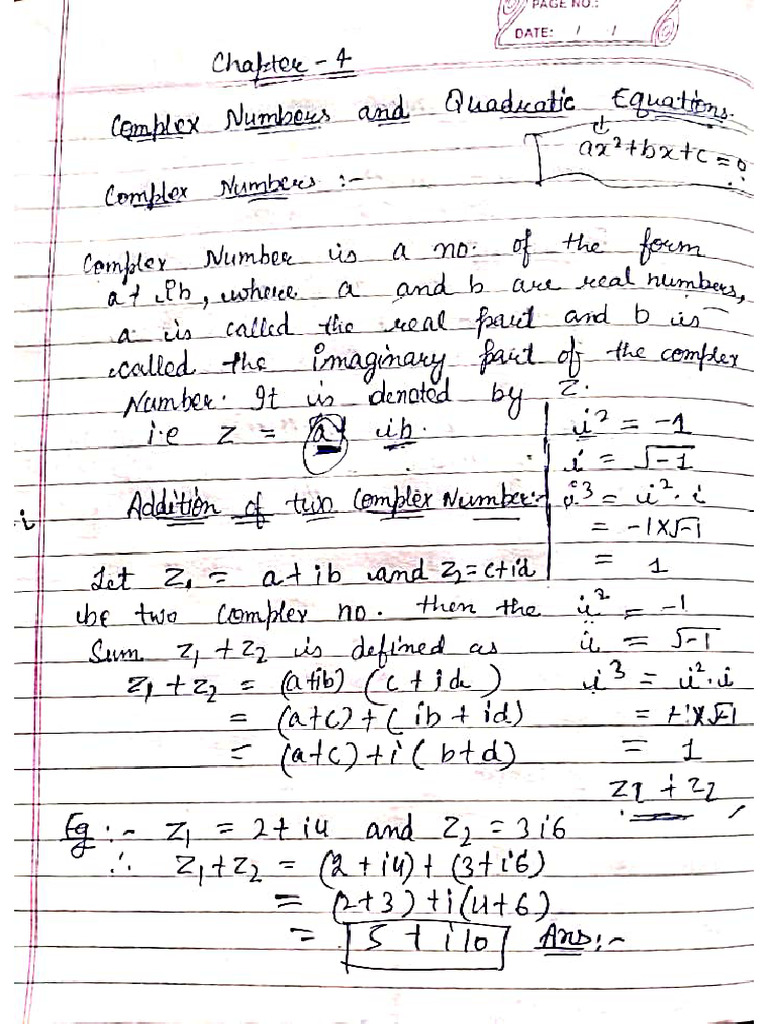 PAGE NO.:
DATE: / /
Chapter - 4
Complex Numbers and Quadratic Equations.
ax²+bx+c=0
Complex Numbers :-
Complex Number is a no. of the form
a+ib, where a and b are real numbers,
a is called the real part and b is
called the imaginary part of the complex
Number. It is denoted by z.
i.e z = a+ ib.
i² = -1
i = √-1
i³ = i².i
= -1×√-1
= 1
Addition of two Complex Number:-
i
Let Z₁ = a+ib and Z₂=c+id
be two complex no. then the
Sum z₁ + z₂ is defined as
z₁ + z₂ = (a+ib) (c+id)
= (a+c)+(ib+id)
= (a+c)+i(b+d)
i² = -1
i = √-1
i³ = i².i
= +1×√-1
= 1
z1 + z₂
Eg :- z₁ = 2+i4 and z₂ = 3i6
∴ z₁+z₂ = (2+i4)+(3+i6)
= (2+3)+i(4+6)
= 5 + i10 Ans:-